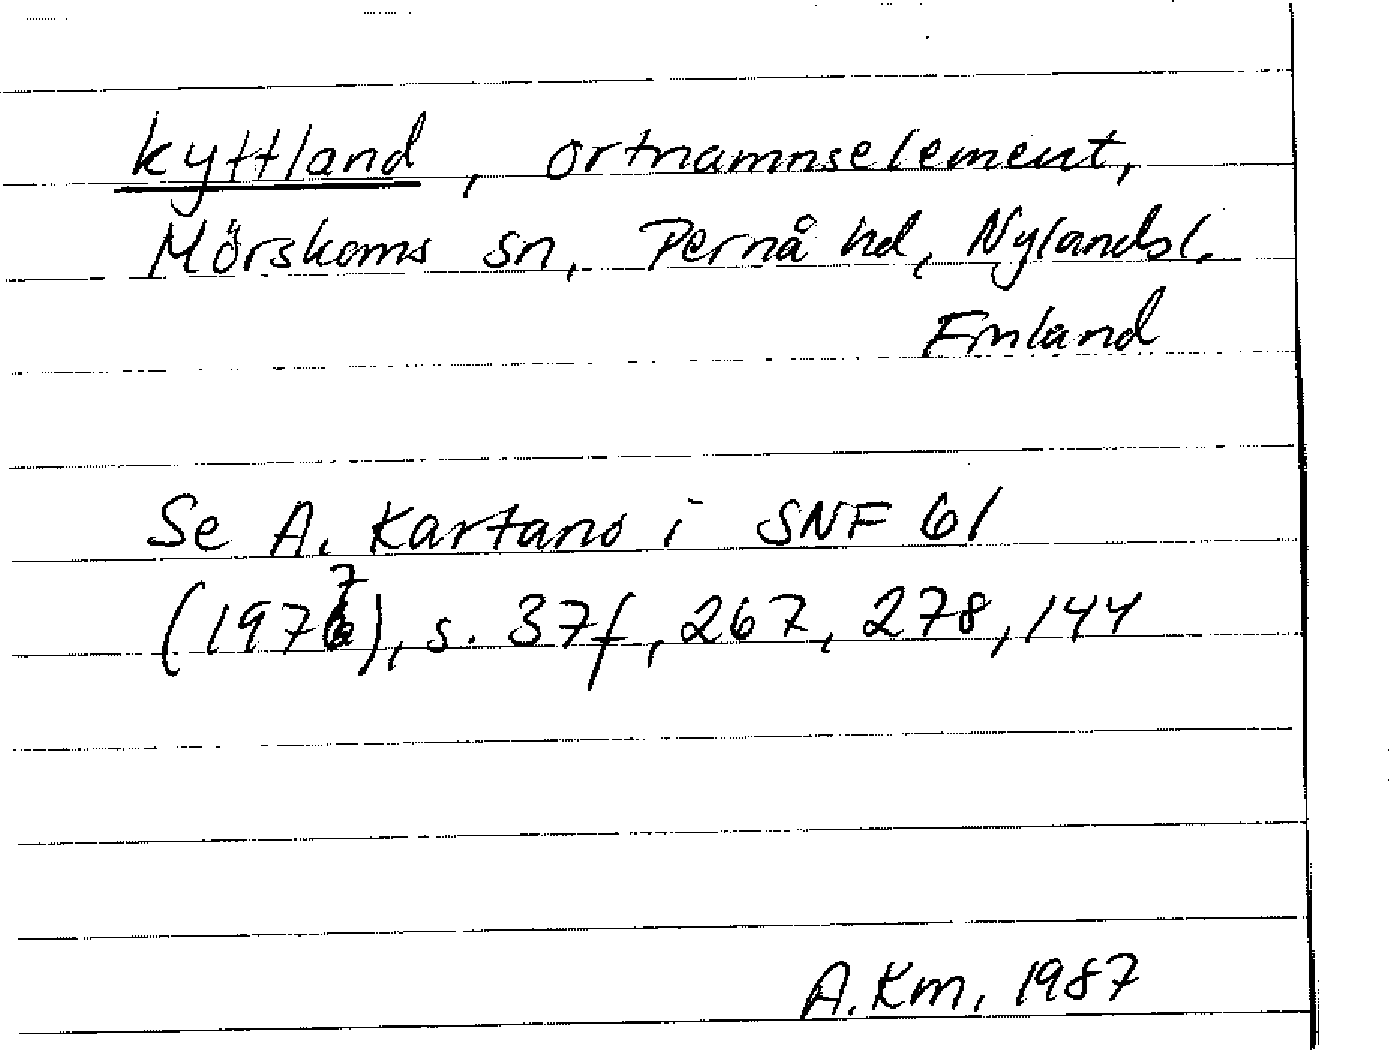 kyttland, ortnamnselement,
Mörskoms sn, Pernå hd, Nylandsl.
Finland
Se A. Kartano i SNF 61
(1977), s. 37f, 267, 278, 144
A. Km, 1987